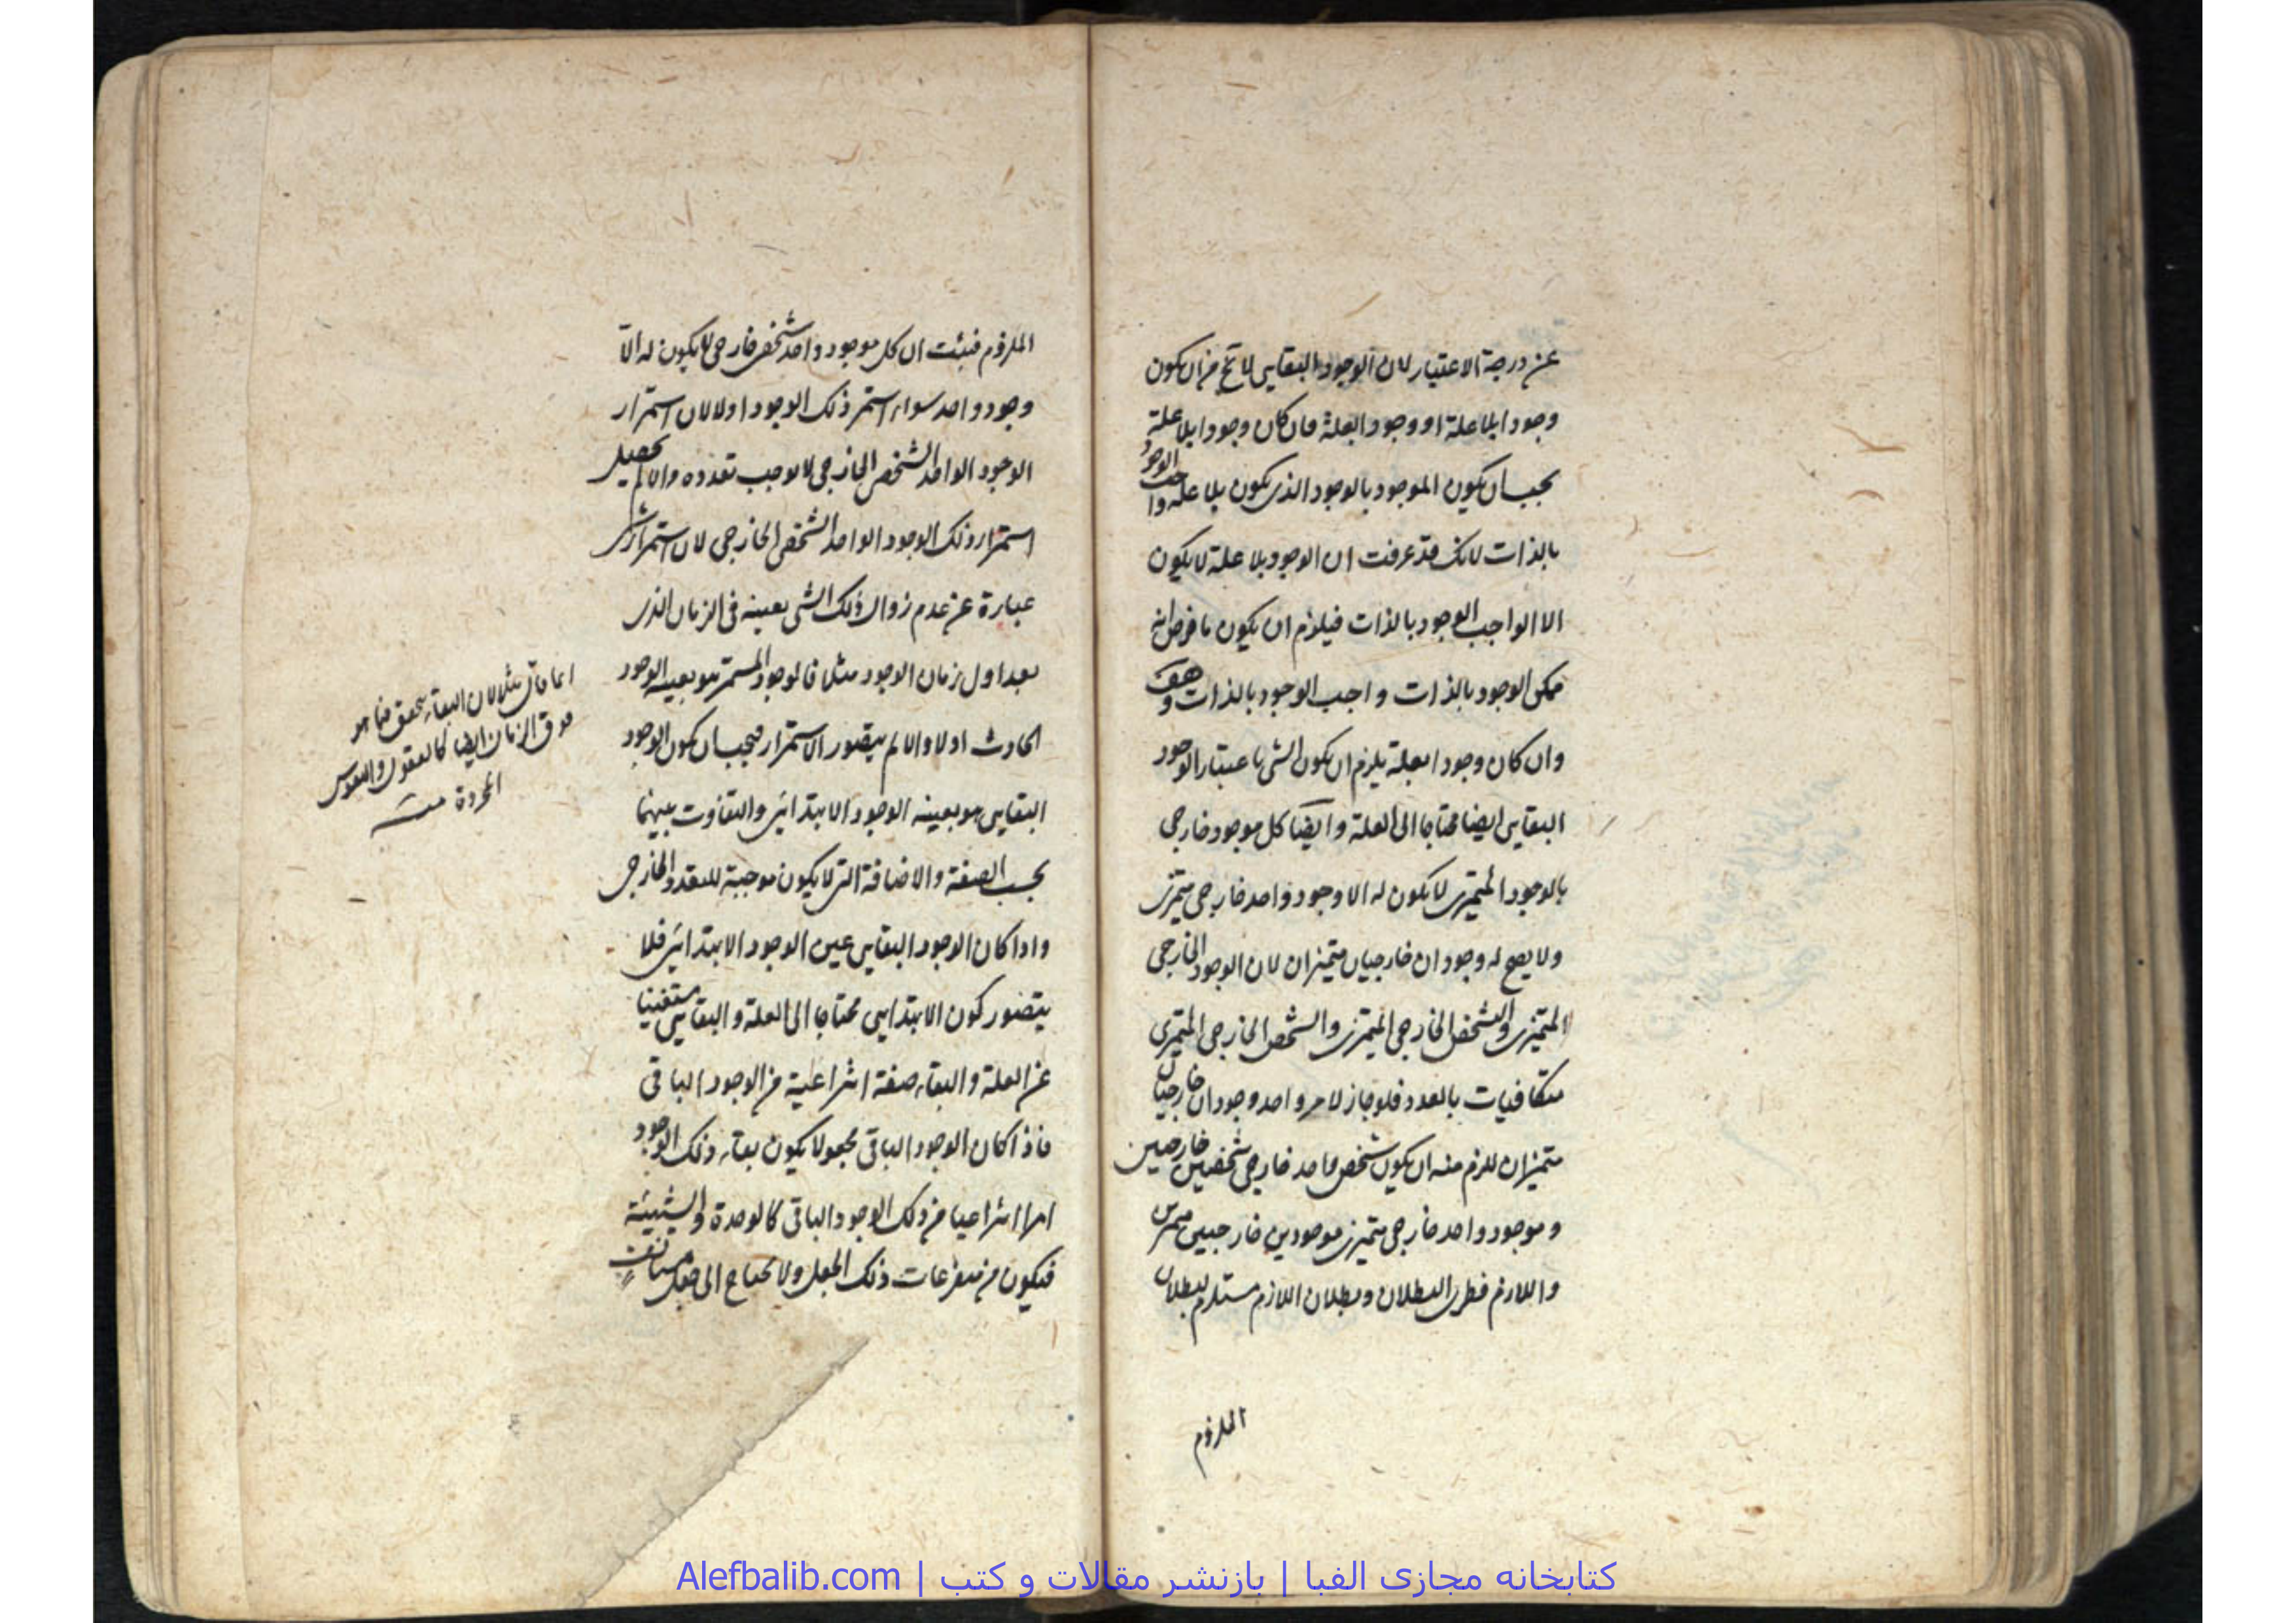 عن درجة الاعتبار لان الوجود البقايى لا يخ من ان يكون
وجودا بلا علة او وجودا بعلة فان كان وجودا بلا علة
يجب ان يكون الموجود بالوجود الذى يكون بلا علة واجب الوجود
بالذات لانك قد عرفت ان الوجود بلا علة لا يكون
الا الواجب الوجود بالذات فيلزم ان يكون ما فرض انه
ممكن الوجود بالذات واجب الوجود بالذات وهف
وان كان وجودا بعلة يلزم ان يكون الشى باعتبار الوجود
البقايى ايضا محتاجا الى العلة وايضا كل موجود خارجى
بالوجود المتميزى لا يكون له الا وجود واحد خارجى متميزى
ولا يصح له وجودان خارجيان متميزان لان الوجود الخارجى
المتميزى والتشخص الخارجى المتميزى والشخص الخارجى المتميزى
متكافيات بالعدد فلو جاز لامر واحد وجودان خارجيان
متميزان للزم منه ان يكون شخص واحد خارجى شخصين خارجيين
وموجود واحد خارجى متميزى موجودين خارجيين
واللازم فطرى البطلان وبطلان اللازم مستلزم لبطلان
الملزوم
الملزوم فيثبت ان كل موجود واحد شخص خارجى لا يكون له الا
وجود واحد سواء استمر ذلك الوجود او لا لان استمرار
الوجود الواحد الشخص الخارجى لا يوجب تعدده والا لم يحصل
استمرار ذلك الوجود الواحد الشخص الخارجى لان استمرار شى
عبارة عن عدم زوال ذلك الشى بعينه فى الزمان الذى
بعد اول زمان الوجود مثلا فالوجود المستمر هو بعينه الوجود
الحادث اولا والا لم يتصور الاستمرار فيجب ان يكون الوجود
البقايى هو بعينه الوجود الابتدائى والتفاوت بينهما
بحسب الصفة والاضافة التى لا يكون موجبة للتعدد الخارجى
واذا كان الوجود البقايى عين الوجود الابتدائى فلا
يتصور كون الابتدايى محتاجا الى العلة والبقايى مستغنيا
عن العلة والبقاء صفة انتزاعية من الوجود الباقى
فاذا كان الوجود الباقى مجعولا يكون بقاء ذلك الوجود
امرا انتزاعيا من ذلك الوجود الباقى كالوحدة والشيئية
فيكون من متفرعات ذلك الجعل ولا يحتاج الى جعل مستانف
انما قال مثلا لان البقاء يتحقق فيما هو
فوق الزمان ايضا كالعقول والنفوس
المجردة منه
کتابخانه مجازی الفبا | بازنشر مقالات و کتب | Alefbalib.com